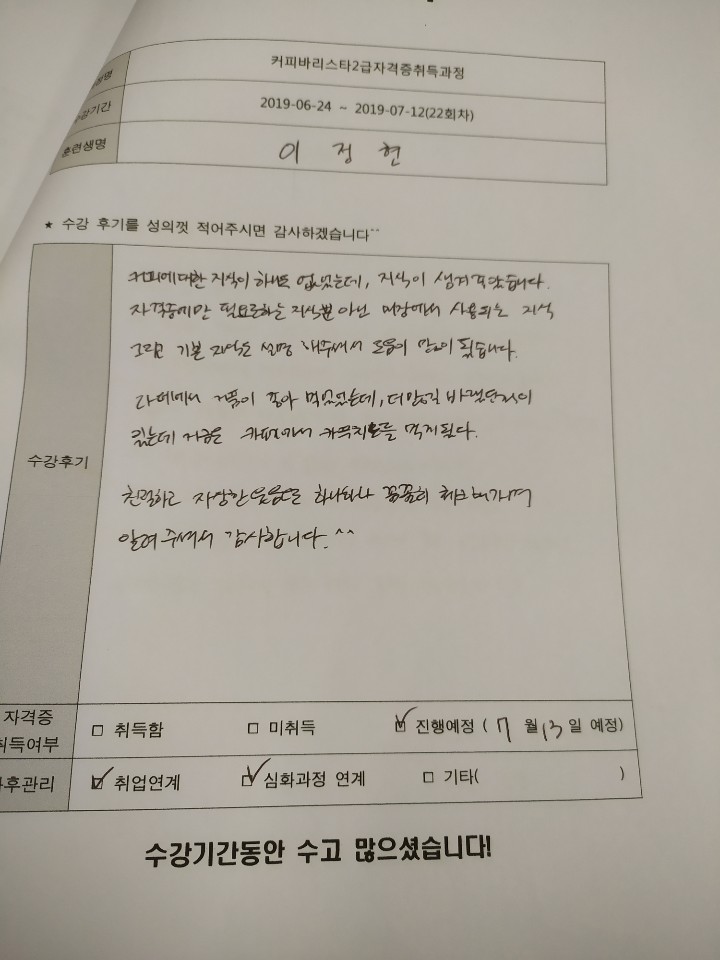 커피바리스타2급자격증취득과정
수강기간 2019-06-24 ~ 2019-07-12(22회차)
훈련생명 이 정 현
★ 수강 후기를 성의껏 적어주시면 감사하겠습니다^^
수강후기
커피에대한 지식이 하나도 없었는데, 지식이 생겨 좋았습니다.
자격증에만 필요로하는 지식뿐 아닌 매장에서 사용되는 지식
그림 기본 지식도 설명 해주셔서 도움이 많이 됐습니다.
라떼에서 거품이 좋아 먹었었는데,
있는데 지금은 카페에서 카푸치노를 먹게된다.
친절하고 자상한 하나하나 꼼꼼히 체크해가며
알려 주셔서 감사합니다. ^^
자격증 취득여부 □ 취득함 □ 미취득 ☑ 진행예정 ( 7 월 13 일 예정)
사후관리 ☑ 취업연계 ☑ 심화과정 연계 □ 기타( )
수강기간동안 수고 많으셨습니다!